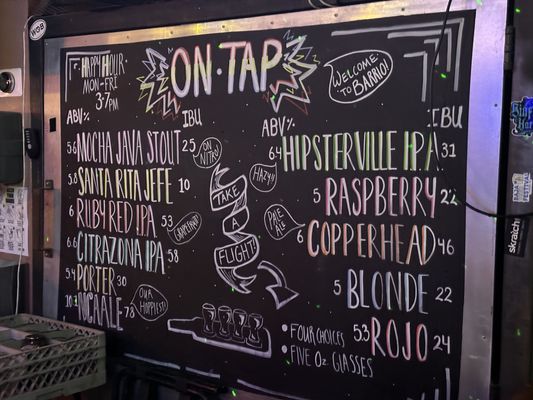 HAPPY HOUR
MON-FRI
3-7PM
ON·TAP
WELCOME TO BARRIO!
ABV%
IBU
5.6 MOCHA JAVA STOUT 25
ON NITRO!
5.8 SANTA RITA JEFE 10
6 RUBY RED IPA 53
GRAPEFRUIT!
6.6 CITRAZONA IPA 58
5.4 PORTER 30
10 NCAALE 78
OUR HOPPIEST!
TAKE
A
FLIGHT!
ABV%
IBU
6.4 HIPSTERVILLE IPA 31
HAZY!!
5 RASPBERRY 22
PALE ALE!
6 COPPERHEAD 46
5 BLONDE 22
5.3 ROJO 24
• FOUR CHOICES
• FIVE OZ GLASSES
skratch